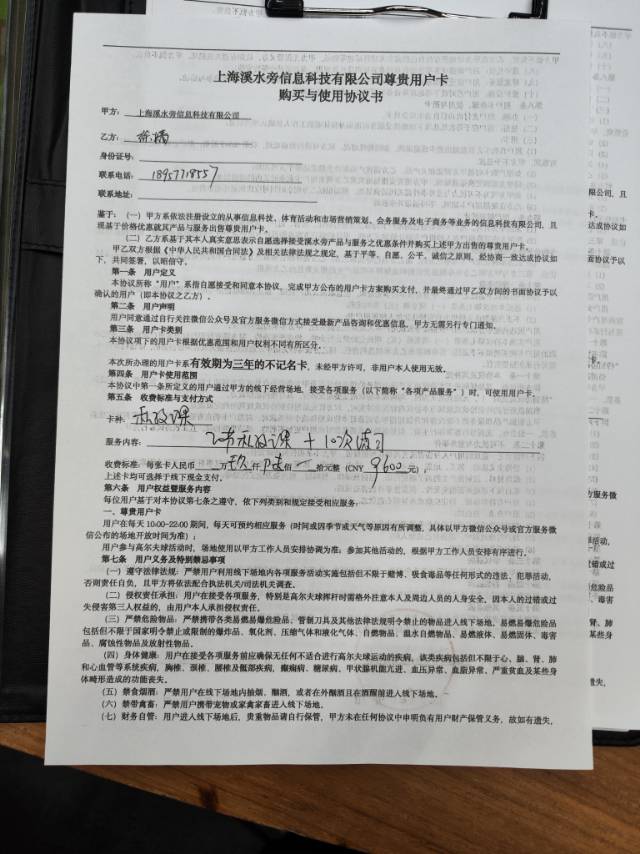 上海溪水旁信息科技有限公司尊贵用户卡
购买与使用协议书
甲方：上海溪水旁信息科技有限公司
乙方：
身份证号：
联系电话：18957718557
联系地址：
鉴于：（一）甲方系依法注册设立的从事信息科技、体育活动和市场营销策划、会务服务及电子商务等业务的信息科技有限公司，且
现基于价格优惠就其产品与服务出售尊贵用户卡。
（二）乙方系基于其本人真实意思表示自愿选择接受溪水旁产品与服务之优惠条件并购买上述甲方出售的尊贵用户卡。
甲乙双方根据《中华人民共和国合同法》及相关法律法规之规定，基于平等、自愿、公平、诚信之原则，经协商一致达成协议如
下，共同签署，以昭信守。
第一条 用户定义
本协议所称"用户"，系指自愿接受和同意本协议，完成甲方公布的用户卡方案购买支付，并最终通过甲乙双方间的书面协议予以
确认的用户（即本协议之乙方）。
第二条 用户声明
用户同意通过自行关注微信公众号及官方服务微信方式接受最新产品咨询和优惠信息，甲方无需另行专门通知。
第三条 用户卡类别
本协议项下的用户卡根据优惠范围和用户权利不同有所区分。
本次所办理的用户卡系有效期为三年的不记名卡，未经甲方许可，非用户本人使用无效。
第四条 用户卡使用范围
本协议中第一条所定义的用户通过甲方的线下经营场地，接受各项服务（以下简称"各项产品服务"）时，可使用用户卡。
第五条 收费标准与支付方式
卡种：私教课
服务内容：私教课 + 10次练习
收费标准：每张卡人民币 万玖仟陆佰 拾元整（CNY 9600 元）；
上述卡均可选择于线下现金支付。
第六条 用户权益暨服务内容
每位用户基于对本协议第七条之遵守，依下列类别和规定接受相应服务：
一、尊贵用户卡
用户在每天 10:00-22:00 期间，每天可预约相应服务（时间或因季节或天气等原因有所调整，具体以甲方微信公众号或官方服务微
信公布的场地开放时间为准）；
用户参与高尔夫球活动时，场地使用以甲方工作人员安排协调为准；参加其他活动的，根据甲方工作人员安排有序进行。
第七条 用户义务及特别禁忌事项
（一）遵守法律法规：严禁用户利用线下场地内各项服务活动实施包括但不限于赌博、吸食毒品等任何形式的违法、犯罪活动，
否则责任自负，且甲方将依法配合执法机关/司法机关调查。
（二）侵权责任承担：用户在接受各项服务，特别是高尔夫球挥杆时需格外注意本人及周边人员的人身安全，因本人的过错或过
失侵害第三人权益的，由用户本人承担侵权责任。
（三）严禁危险物品：严禁携带各类易燃易爆危险品、管制刀具及其他法律法规明令禁止的物品进入线下场地，易燃易爆危险品
包括但不限于国家明令禁止或限制的爆炸品、氧化剂、压缩气体和液化气体、自燃物品、遇水自燃物品、易燃液体、易燃固体、毒害
品、腐蚀性物品及放射性物品。
（四）身体健康：用户在接受各服务前应确保无任何不适合进行高尔夫球运动的疾病，该类疾病包括但不限于心、脑、肾、肺
和心血管等系统疾病，胸椎、颈椎、腰椎及骶部疾病，癫痫病、糖尿病、甲状腺机能亢进、血压异常、血脂异常、严重贫血及某些身
体畸形造成的功能丧失。
（五）禁食烟酒：严禁用户在线下场地内抽烟、酗酒，或者在外酗酒且在酒醒前进入线下场地。
（六）禁带禽畜：严禁用户携带宠物或家禽家畜进入线下场地。
（七）财务自管：用户进入线下场地后，贵重物品请自行保管，甲方未在任何协议中申明负有用户财产保管义务，故如有遗失，